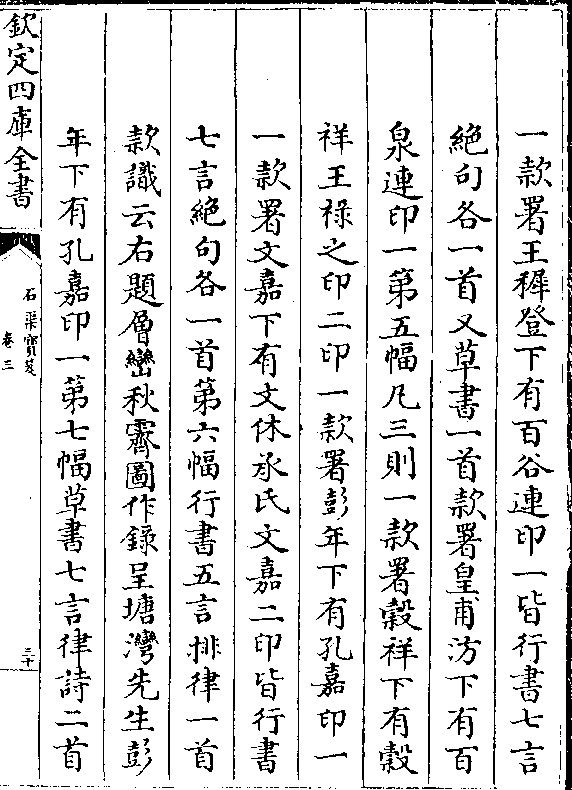 一款署王穉登下有百谷連印一皆行書七言
絶句各一首又草書一首款署皇甫汸下有百
泉連印一第五幅凡三則一款署榖祥下有榖
祥王祿之印二印一款署彭年下有孔嘉印一
一款署文嘉下有文休承氏文嘉二印皆行書
七言絶句各一首第六幅行書五言排律一首
款識云右題層巒秋霽圖作錄呈塘灣先生彭
年下有孔嘉印一第七幅草書七言律詩二首
欽定四庫全書
石渠寶笈
卷三
三十